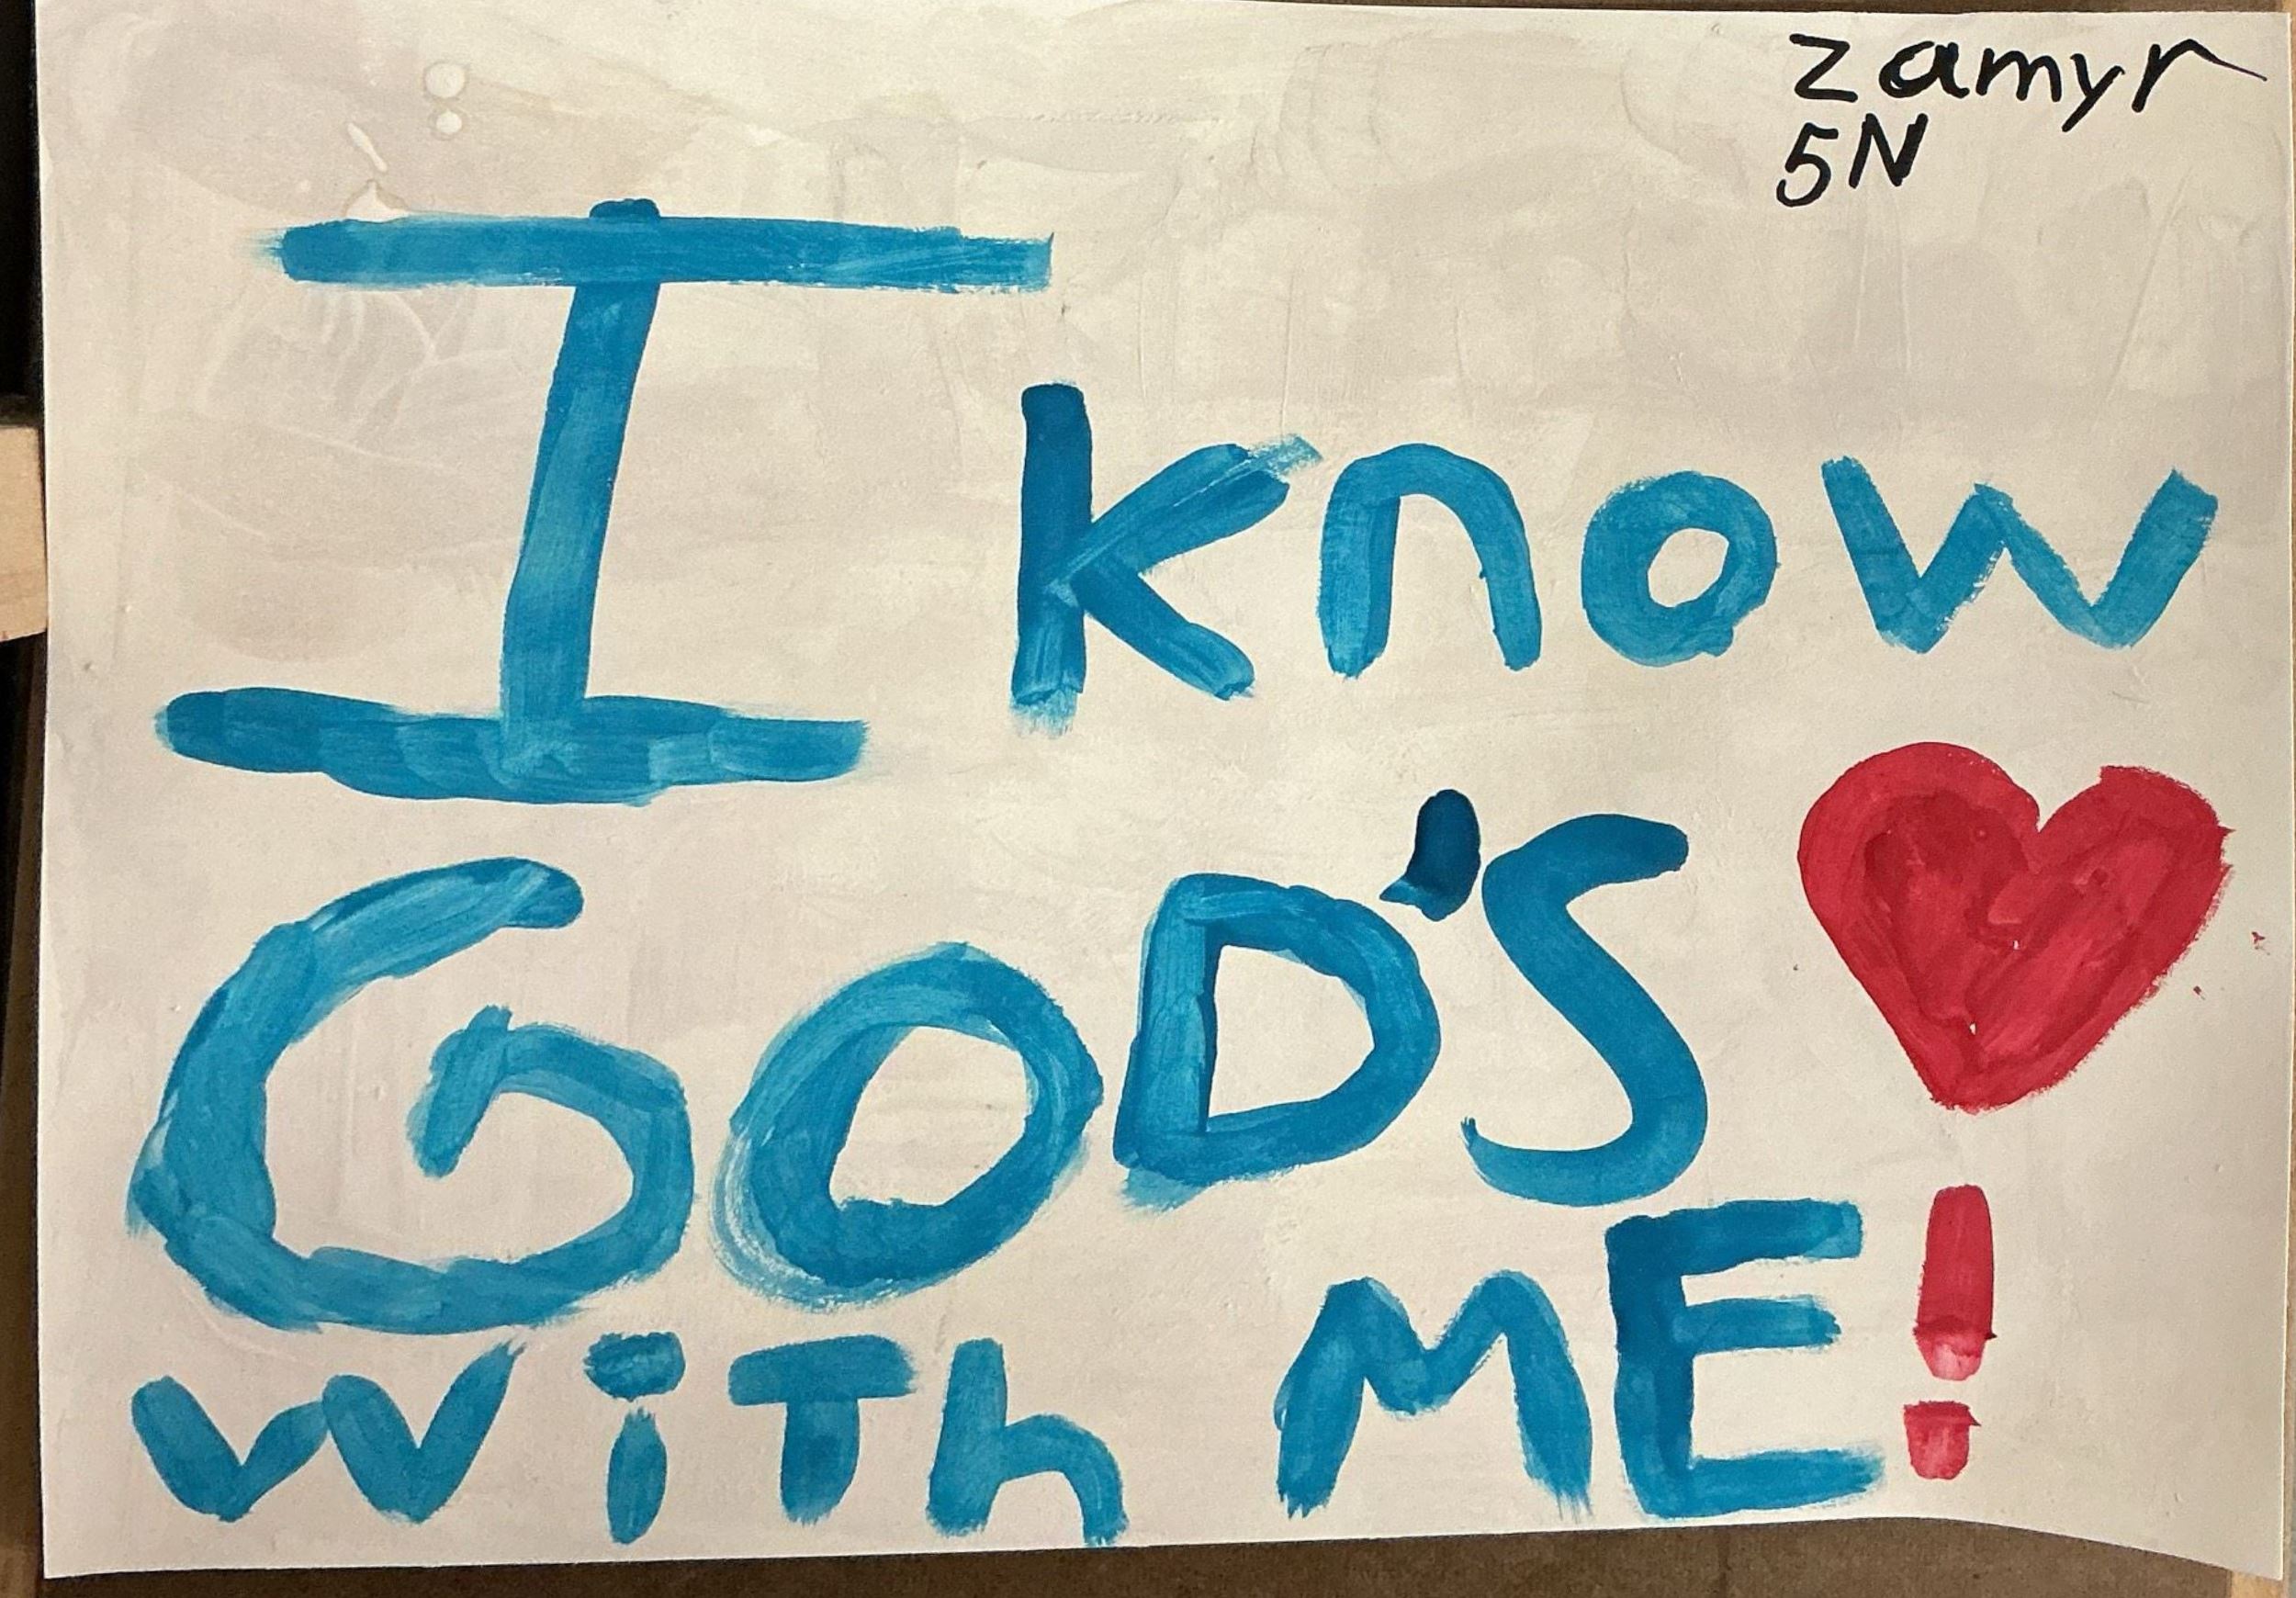 zamyr
5N
I know
GOD'S
with ME!